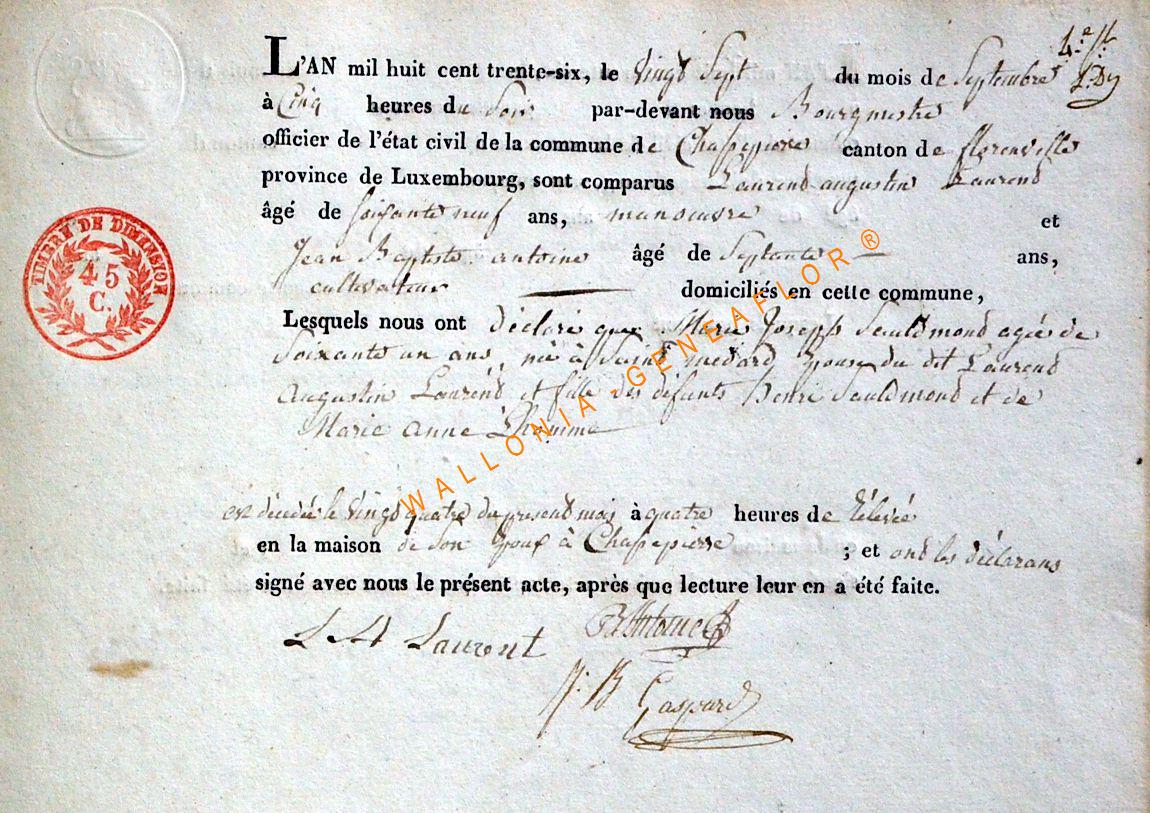 L'AN mil huit cent trente-six, le vingt sept du mois de Septembre
à Cinq heures du Soir par-devant nous Bourgmestre
officier de l'état civil de la commune de Chassepierre canton de florenville
province de Luxembourg, sont comparus Laurend augustin Laurend
âgé de soixante neuf ans, manoeuvre et
Jean Baptiste antoine âgé de Septante ans,
cultivateur domiciliés en cette commune,
Lesquels nous ont déclaré que Marie Joseph Sauldmond agée de
Soixante un ans, née à Saint médard épouse du dit Laurend
Augustin Laurend et fille des défunts Henri Sauldmond et de
Marie anne L'homme
est décédée le vingt quatre du présent mois à quatre heures de rélévée
en la maison de son époux à Chassepierre ; et ont les déclarans
signé avec nous le présent acte, après que lecture leur en a été faite.
L A Laurent
JB Antoine
J. B Gaspard
TIMBRE DE DIMENSION
45
C.
WALLONIA - GENEAFLOR ®